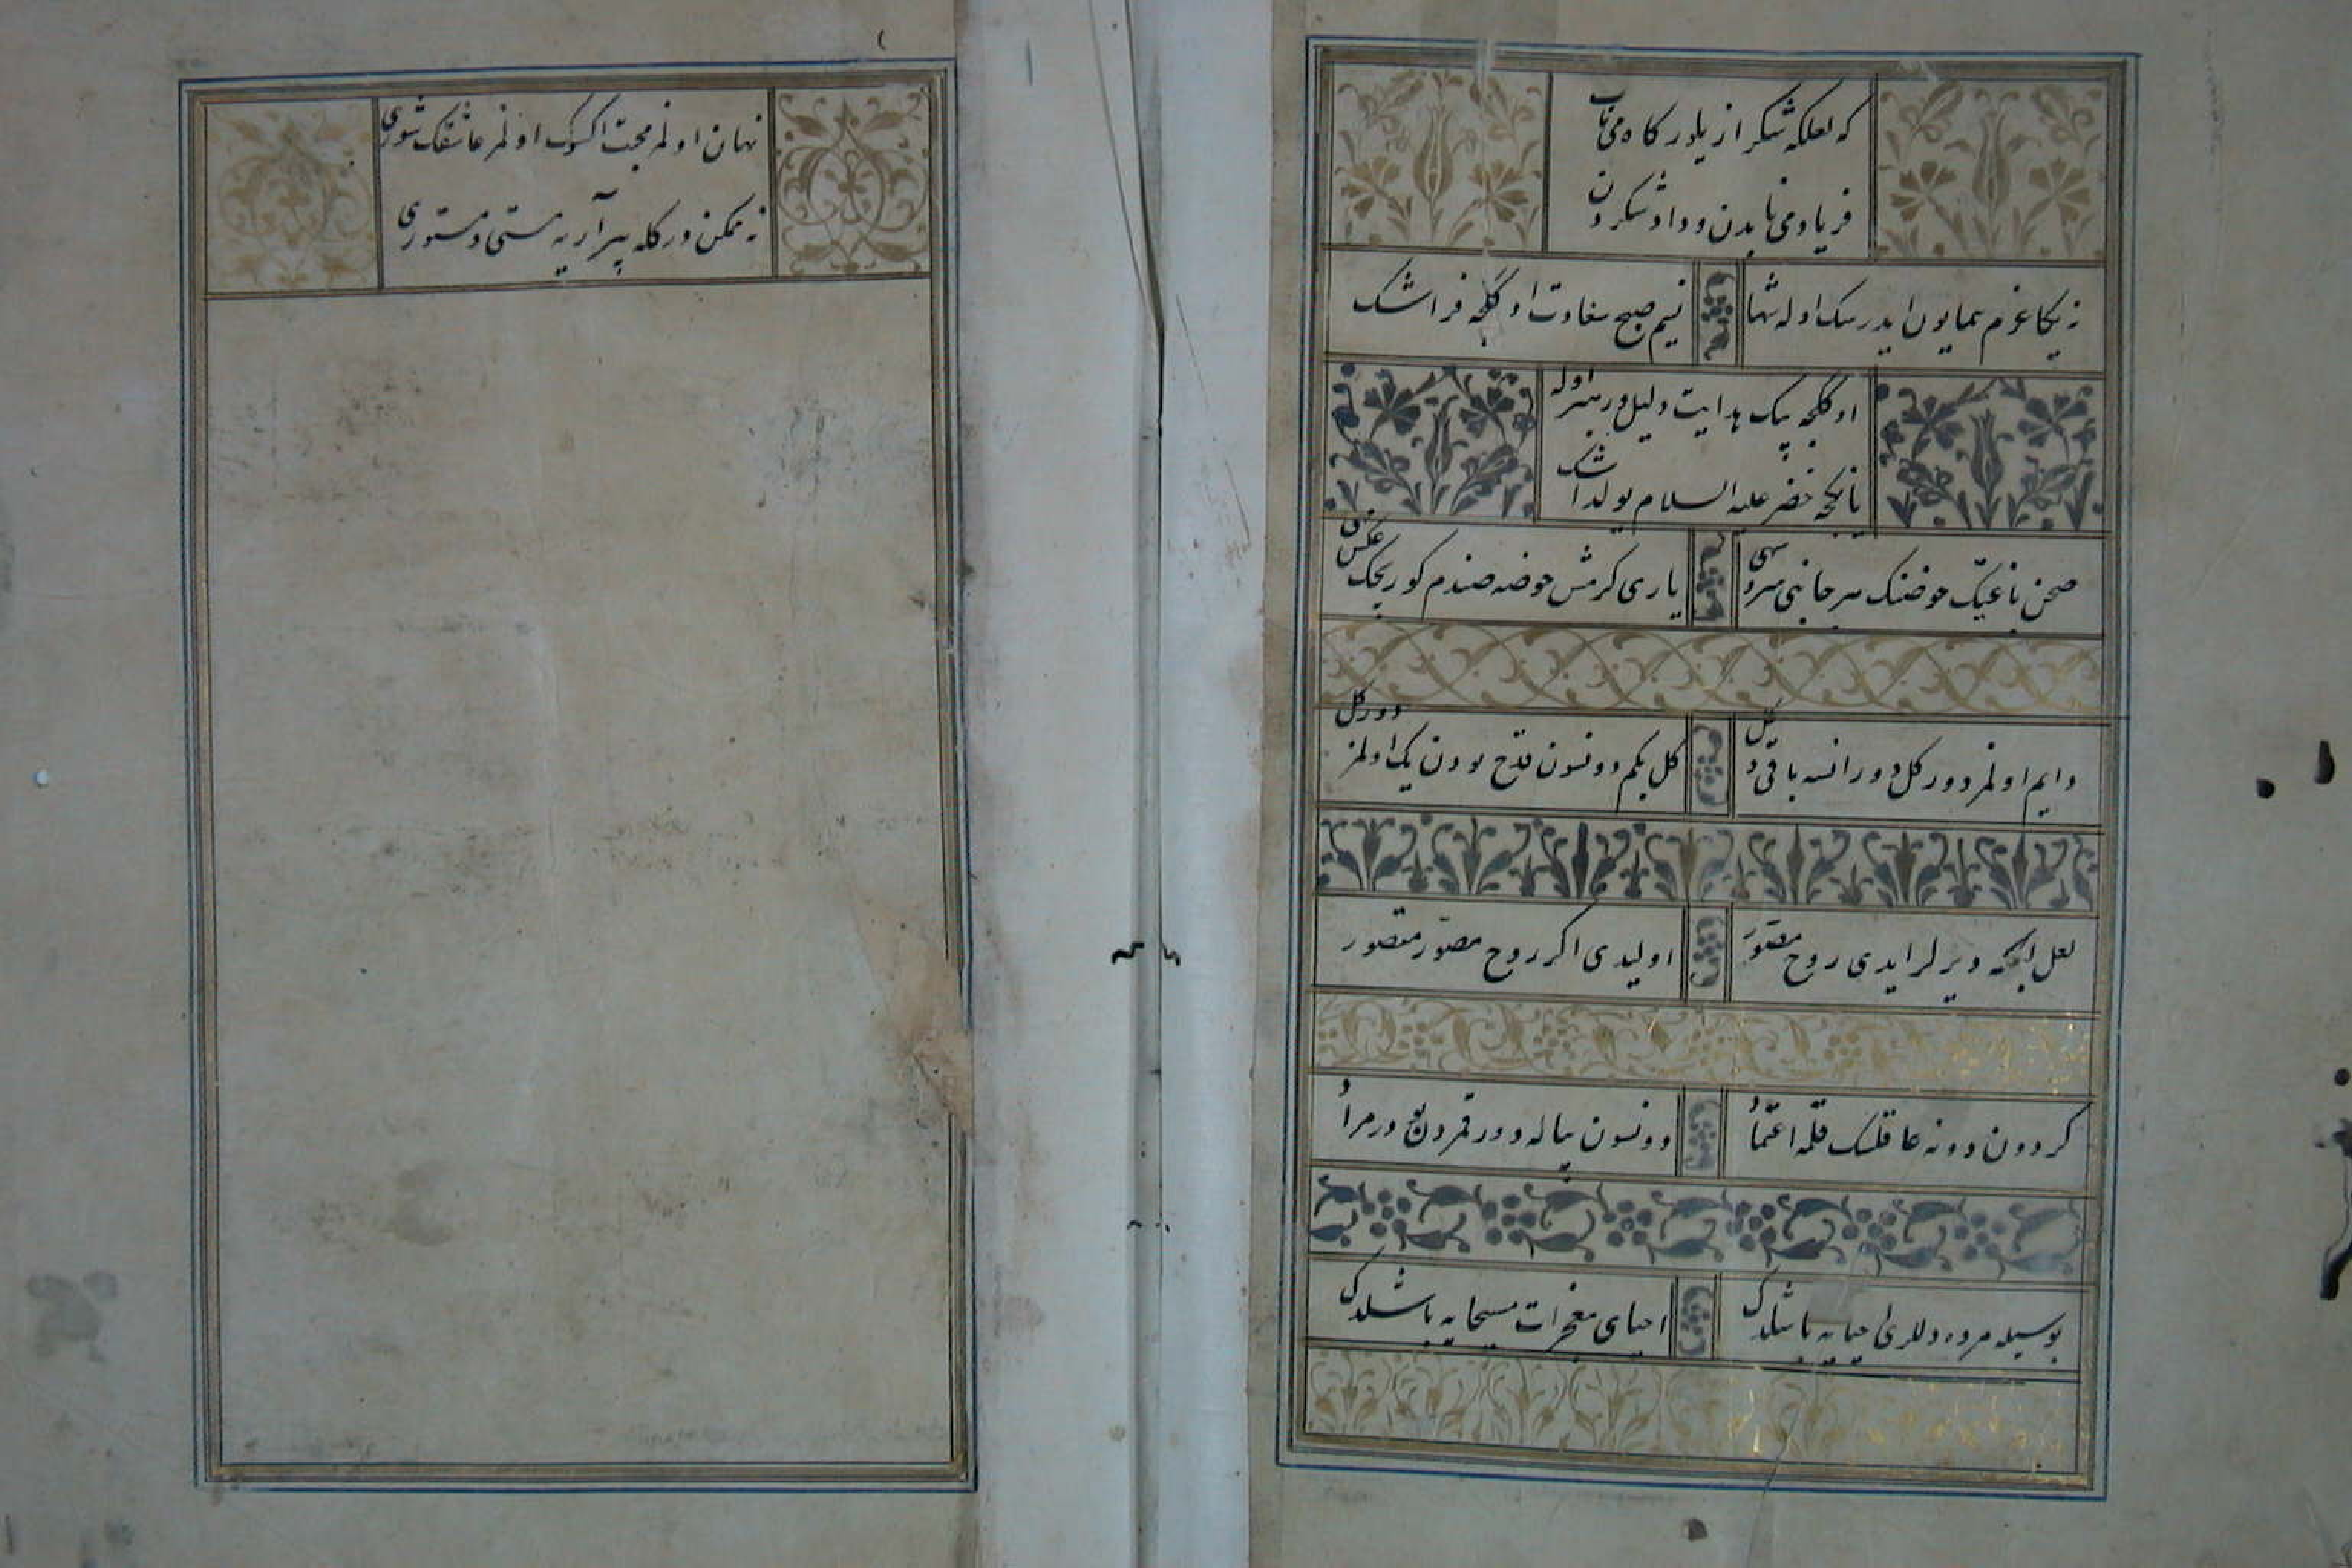 که لعلکه شکر ازیلور کاه می ناب
فریاد می نابدن و داد شکردن
نه یکا عزم همایون ایدرسک اوله شها
نسیم صبح سعادت اوکنجه فراشک
اوکنجه پیک هدایت دلیل و رهبر اوله
یانکجه خضر علیه السلام یولداشک
صحن باغک حوضنک هر جانبی سرو سهی
یاری کرمش حوضه صندم کوریجک عکسن
دایم اولمز دور کل دورانسه باقی دکل
کل بکم دونسون قدح بوندن یک اولمز دور کل
لعل لبکه دیرلر ایدی روح مصور
اولیدی اکر روح مصور متصور
کردون دونه عاقلسک قلمه اعتماد
دونسون پیاله دور قمردن بودر مراد
بوسیله مرده دللری احیایه باشلدک
احیای معجزات مسیحایه باشلدک
نهان اولمز محبت اکسک اولمز عاشقک شوری
نه ممکندر کله بیر آرایه مستی و مستوری